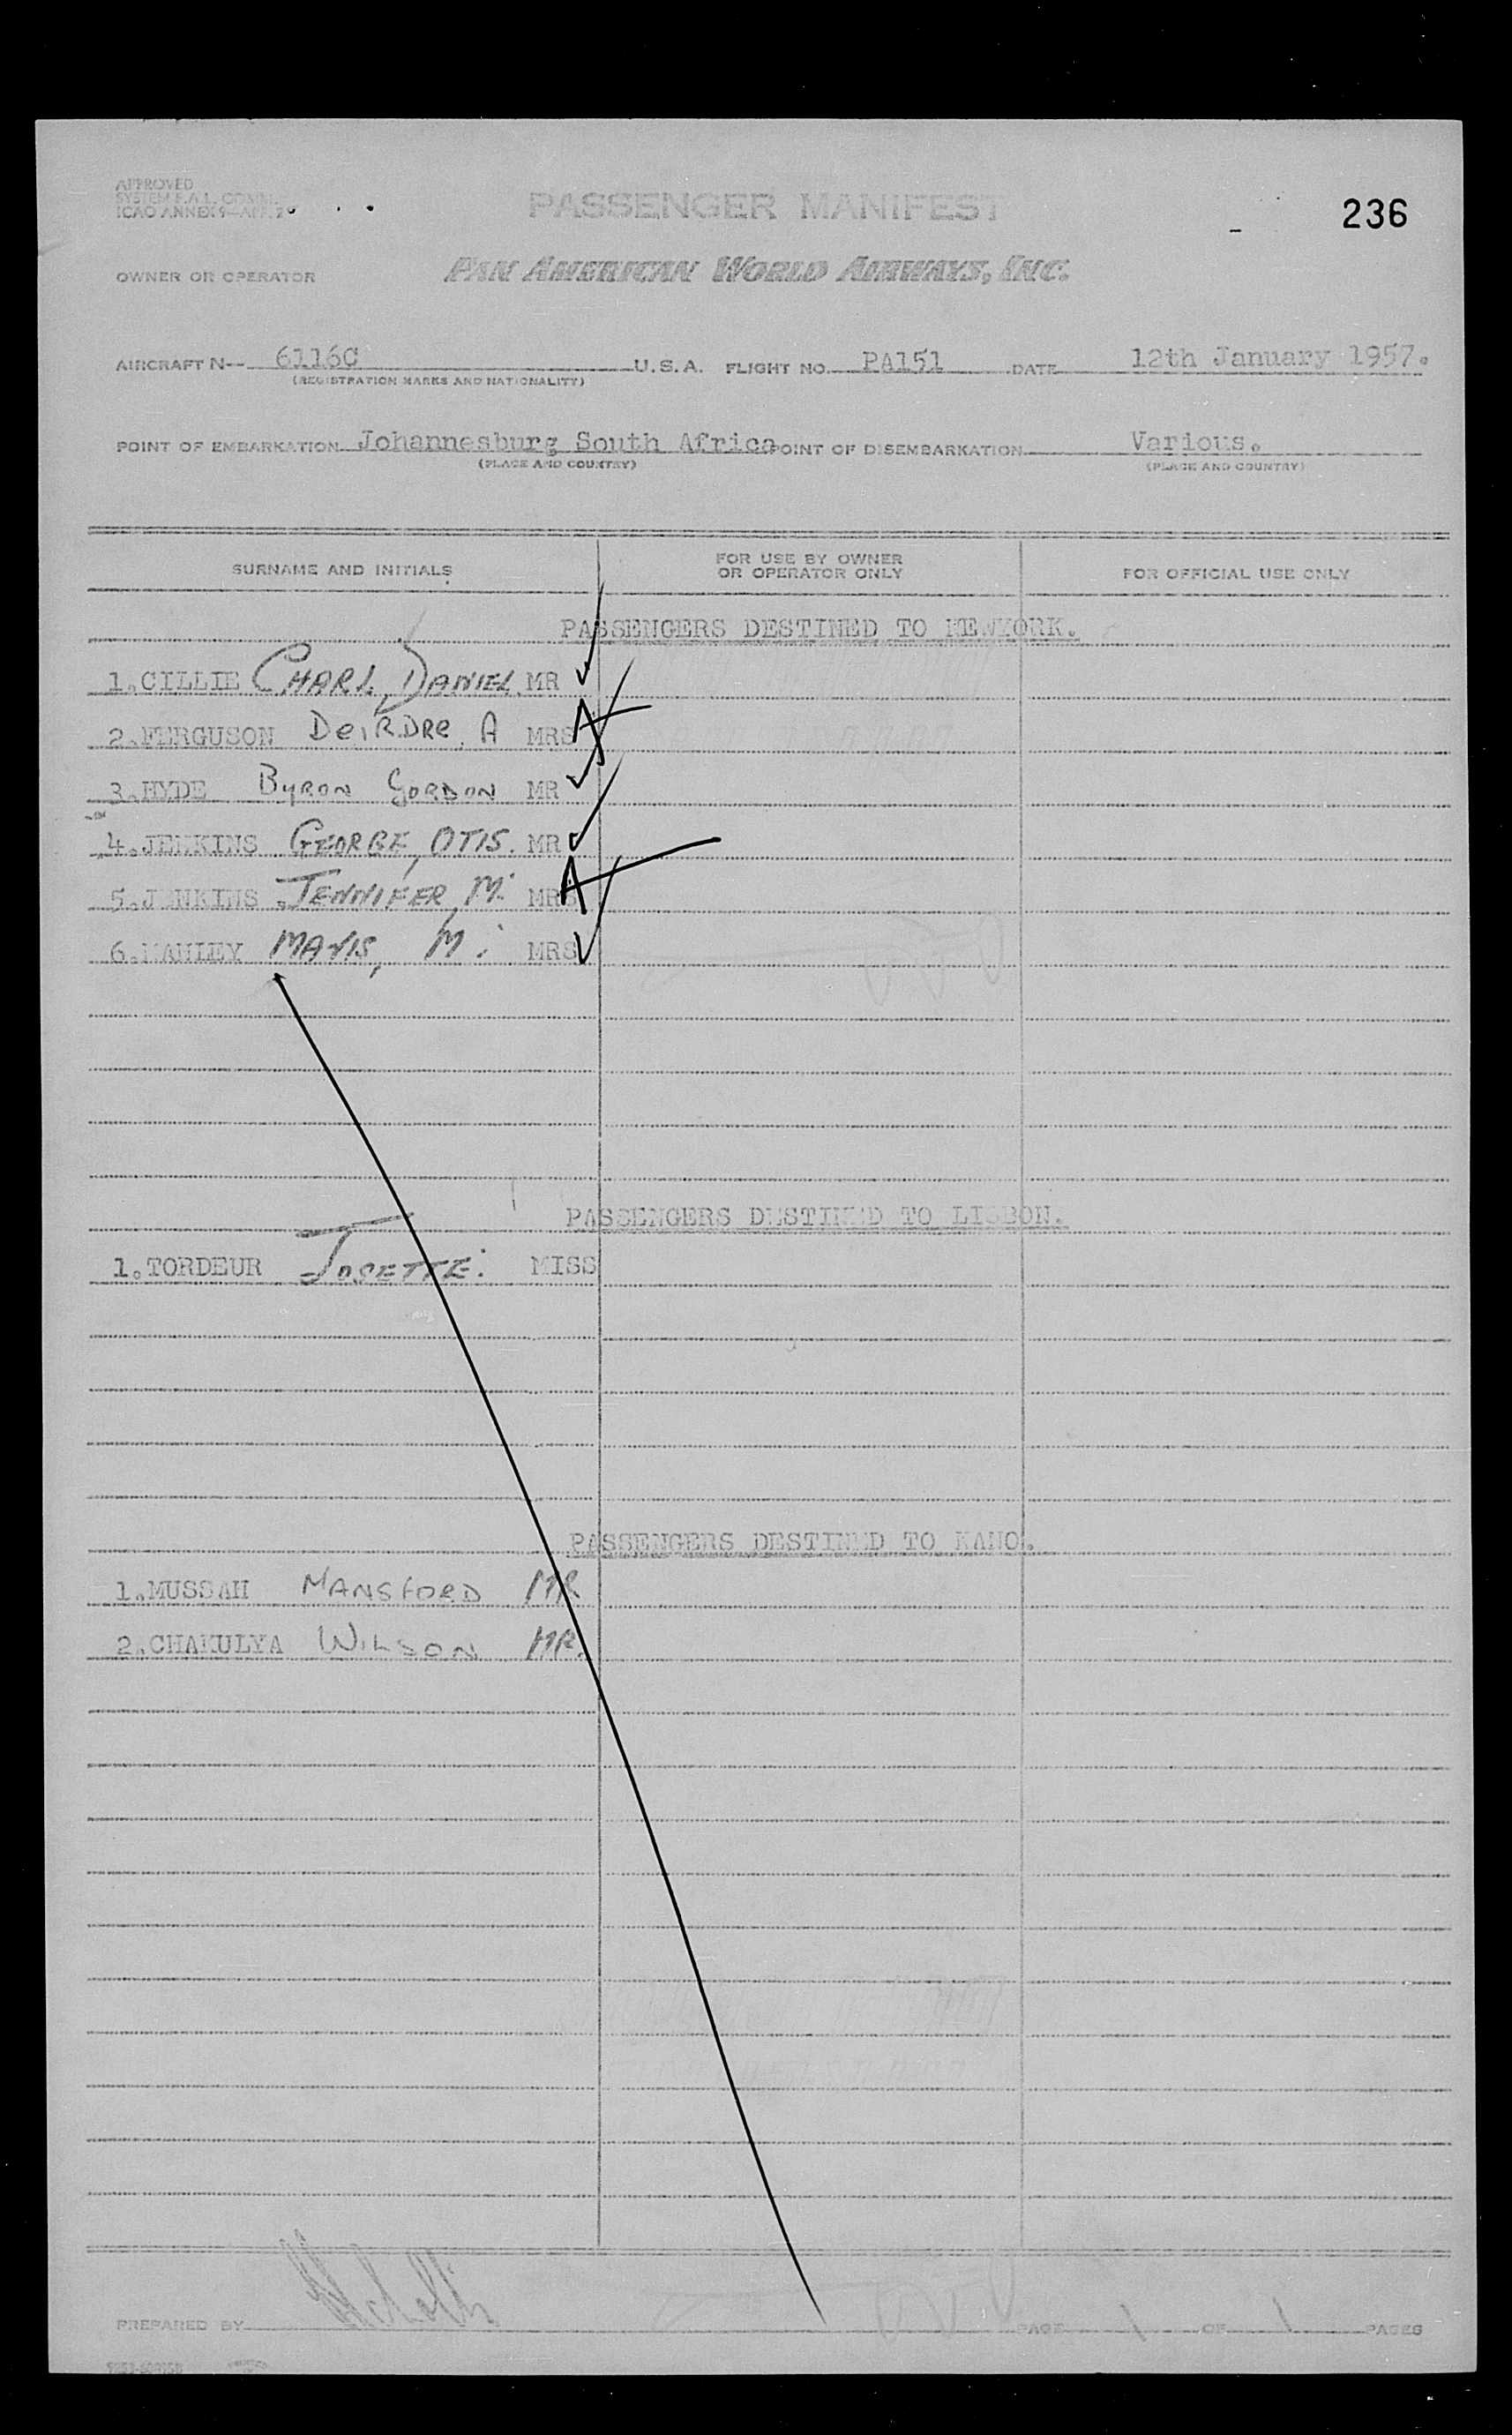 APPROVED
SYSTEM F.A.L. COMM.
ICAO ANNEX 9—APP. 2
PASSENGER MANIFEST
236
OWNER OR OPERATOR PAN AMERICAN WORLD AIRWAYS, INC.
AIRCRAFT N-- 6116C U.S.A. FLIGHT NO. PA151 DATE 12th January 1957.
(REGISTRATION MARKS AND NATIONALITY)
POINT OF EMBARKATION Johannesburg South Africa POINT OF DISEMBARKATION Various.
(PLACE AND COUNTRY) (PLACE AND COUNTRY)
SURNAME AND INITIALS FOR USE BY OWNER OR OPERATOR ONLY FOR OFFICIAL USE ONLY
PASSENGERS DESTINED TO NEWYORK.
1.CILLIE CHARL, DANIEL. MR
2.FERGUSON DeiRDRe A MRS A
3.HYDE BYRON GORDON MR
4.JENKINS GEORGE, OTIS. MR
5.JENKINS JENNIFER, M. MRS A
6. MAVIS, M. MRS
PASSENGERS DESTINED TO LISBON.
1.TORDEUR JOSETTE. MISS
PASSENGERS DESTINED TO KANO.
1.MUSSAH MANSFORD MR
2.CHAKULYA WILSON MR.
PREPARED BY PAGE 1 OF 1 PAGES